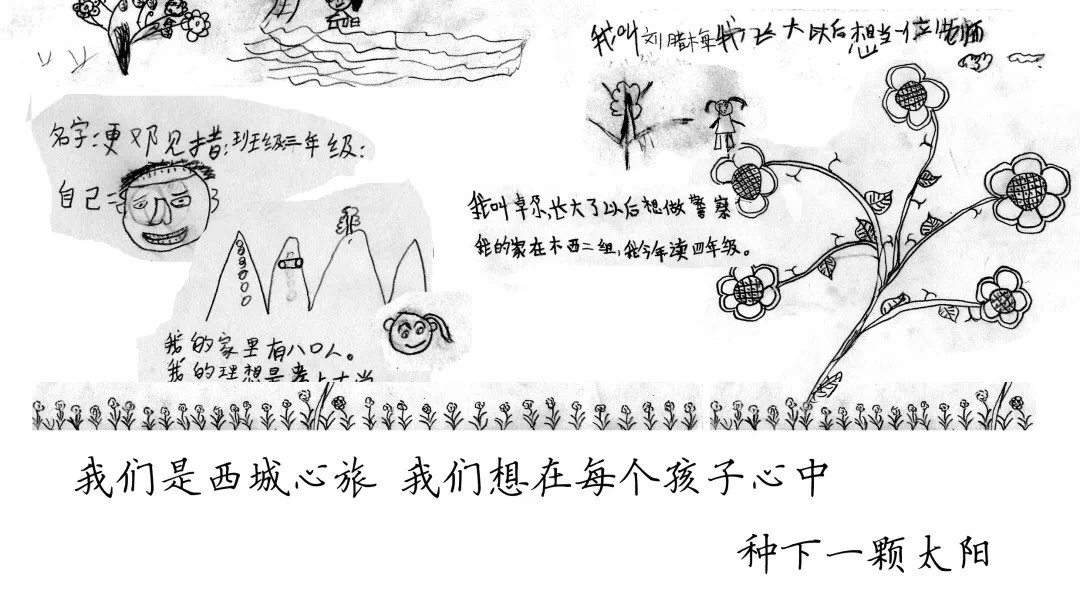 我叫刘腊梅我长大以后想当一位老师
名字:更邓见措;班级三年级:
自己=
我叫卓尕,长大了以后想做警察
我的家在木西二组,我今年读四年级。
我的家里有八口人。
我的理想是考上大学
我们是西城心旅 我们想在每个孩子心中
种下一颗太阳